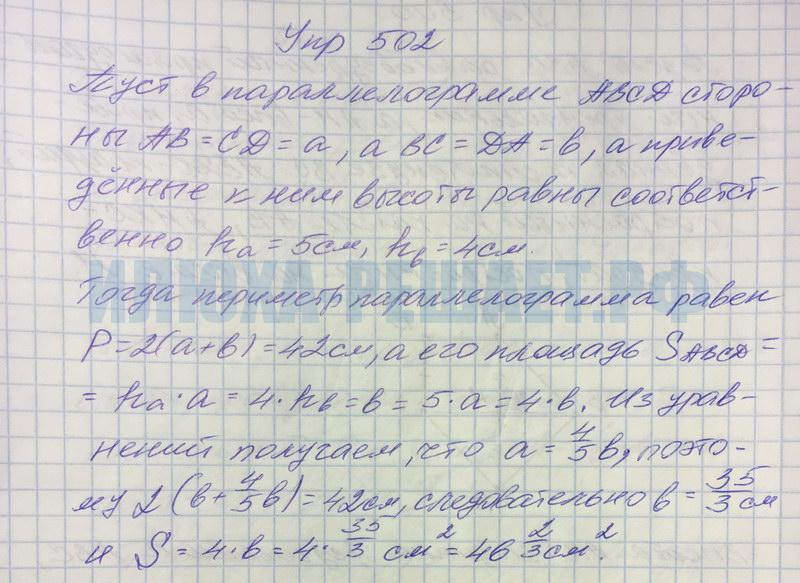 Упр 502
Пуст в параллелограмме ABCD сторо-
ны AB = CD = a, а BC = DA = b, а приве-
дённые к ним высоты равны соответст-
венно ha = 5см, hb = 4см.
ИЛЮХА-РЕШАЕТ.РФ
Тогда периметр параллелограмма равен
P = 2(a+b) = 42см, а его площадь SABCD =
= ha · a = 4 · hb = b = 5 · a = 4 · b. Из урав-
нений получаем, что a = 4/5 b, поэто-
му 2 (b + 4/5 b) = 42см, следовательно b = 35/3 см
и S = 4 · b = 4 · 35/3 см² = 46 2/3 см².